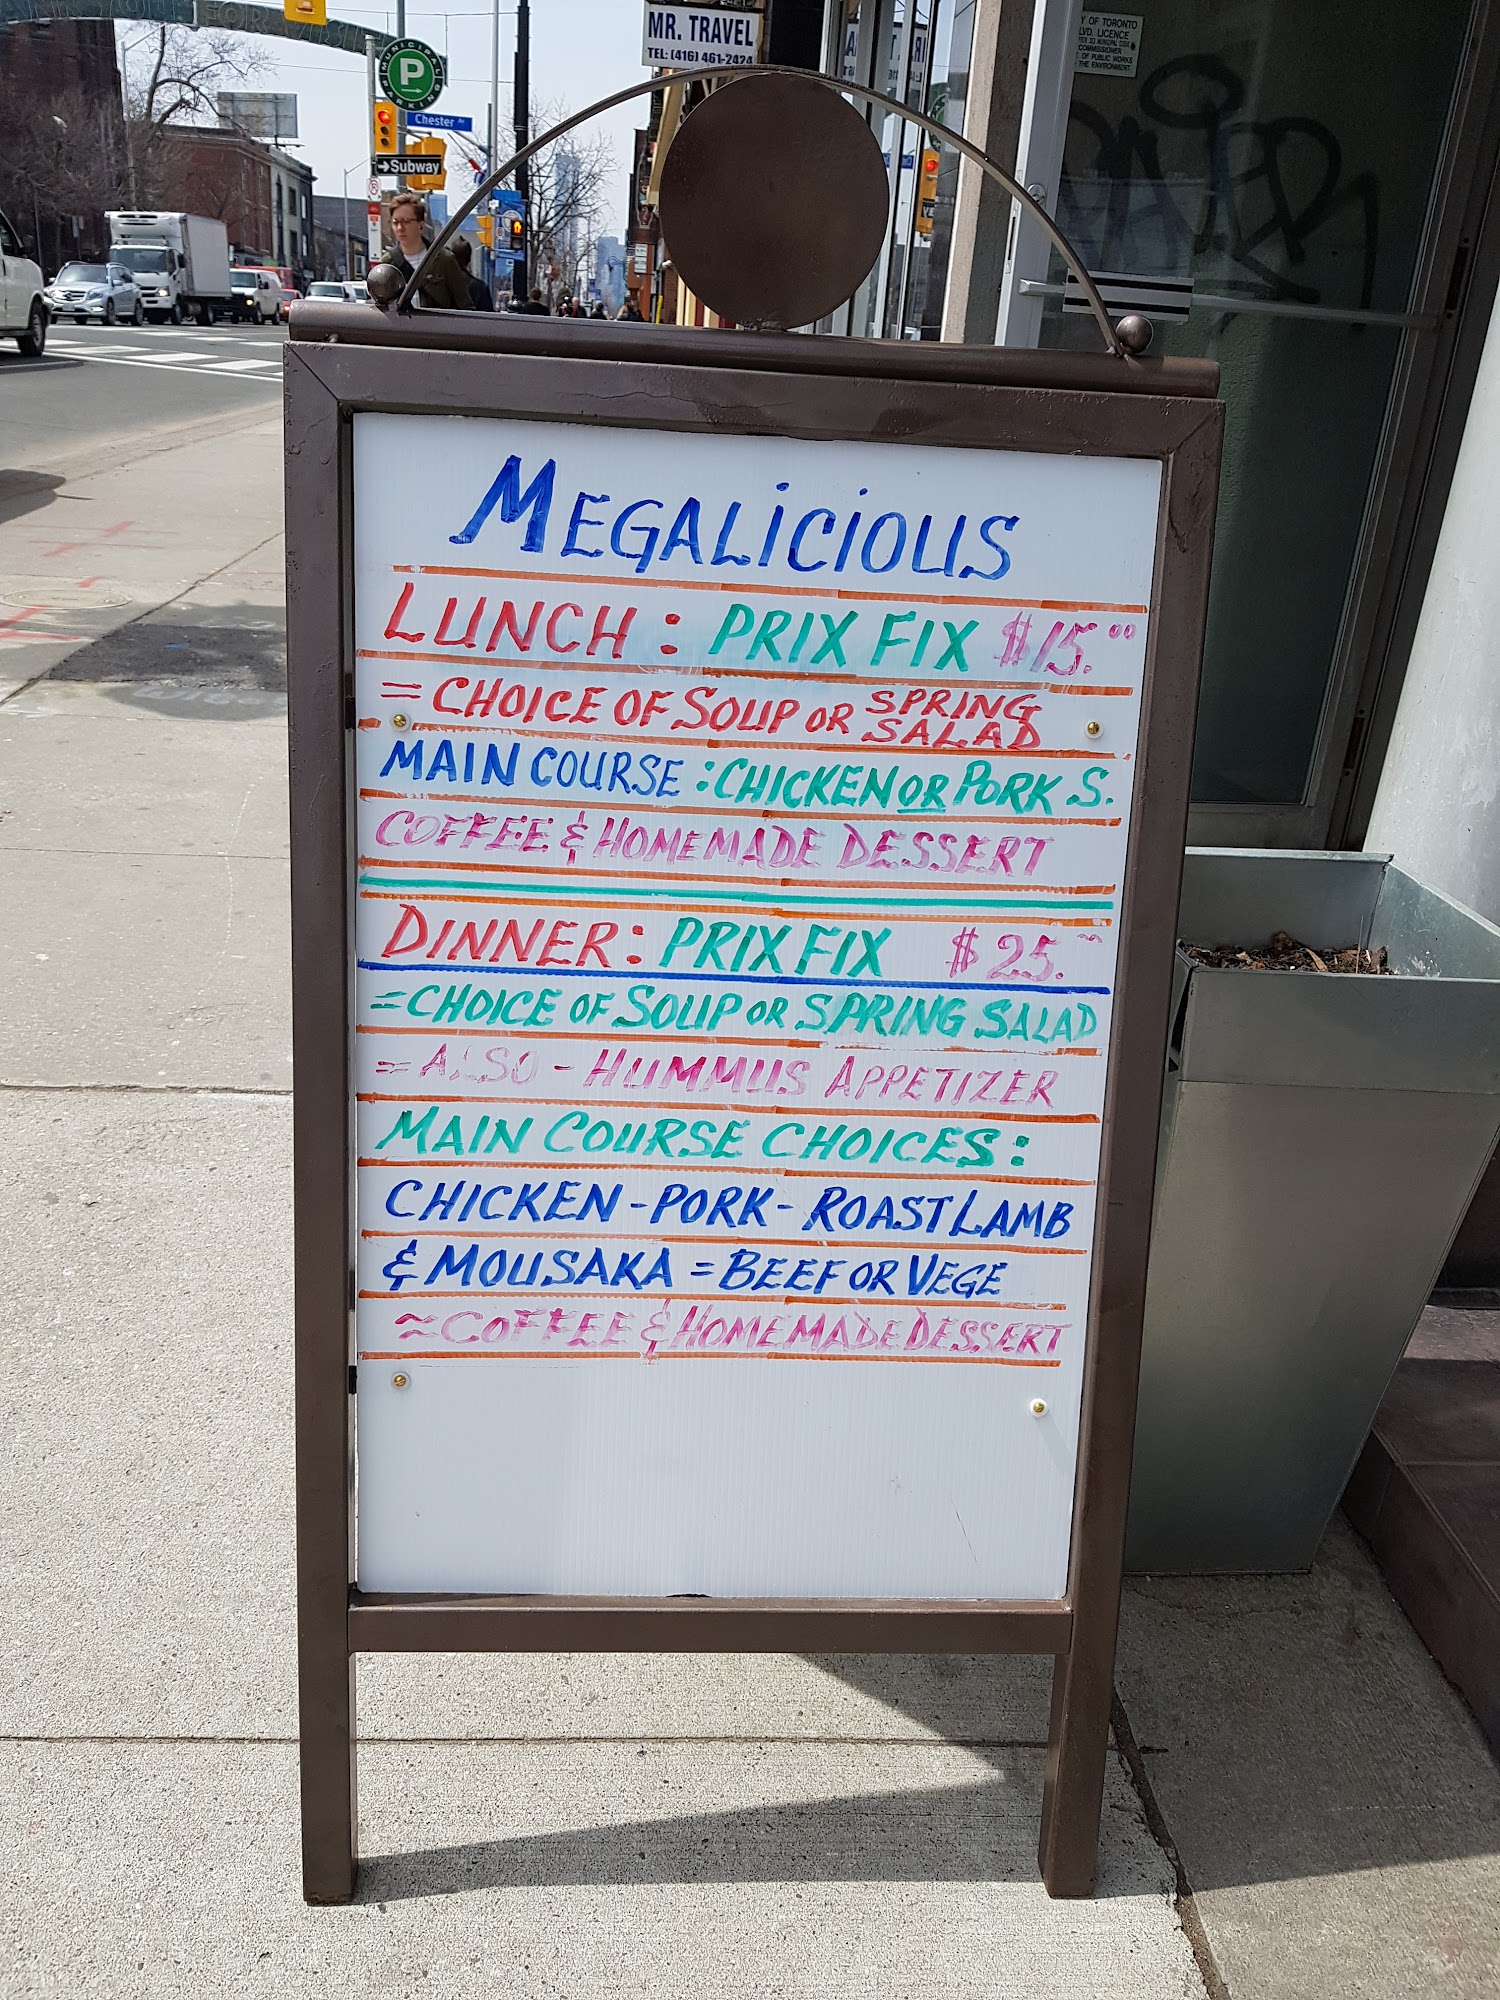 MUNICIPAL
P
PARKING
Chester Av
Subway
MR. TRAVEL
TEL: (416) 461-2424
Y OF TORONTO
LVD. LICENCE
COMMISSIONER
OF PUBLIC WORKS
THE ENVIRONMENT
MEGALiCiOUS
LUNCH : PRIX FIX $15.00
= CHOICE OF SOUP OR SPRING SALAD
MAIN COURSE : CHICKEN OR PORK S.
COFFEE & HOMEMADE DESSERT
DINNER : PRIX FIX $25.
= CHOICE OF SOUP OR SPRING SALAD
= ALSO - HUMMUS APPETIZER
MAIN COURSE CHOICES :
CHICKEN - PORK - ROAST LAMB
& MOUSAKA = BEEF OR VEGE
≈ COFFEE & HOMEMADE DESSERT